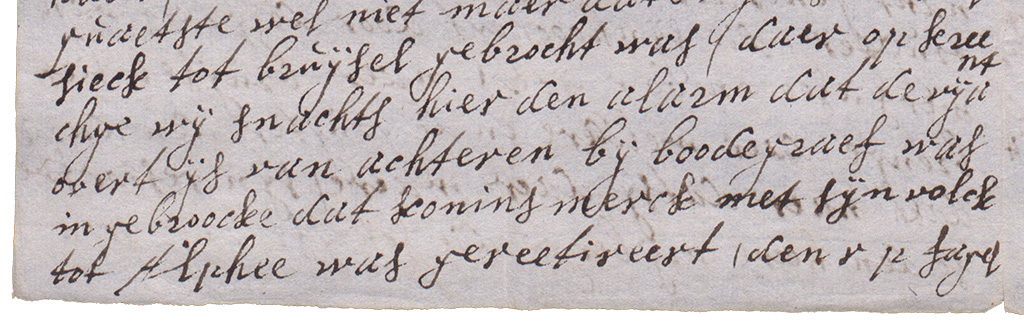 quaetste wel niet maer dat
sieck tot bruÿsel gebrocht was / daer op kree
chge wÿ snachts hier den alarm dat de vÿa nt
overt ÿs van achteren bÿ boodegraef was
in gebroocke dat koninsmerck met sÿn volck
tot Alphee was gereetireert / den r p fagel